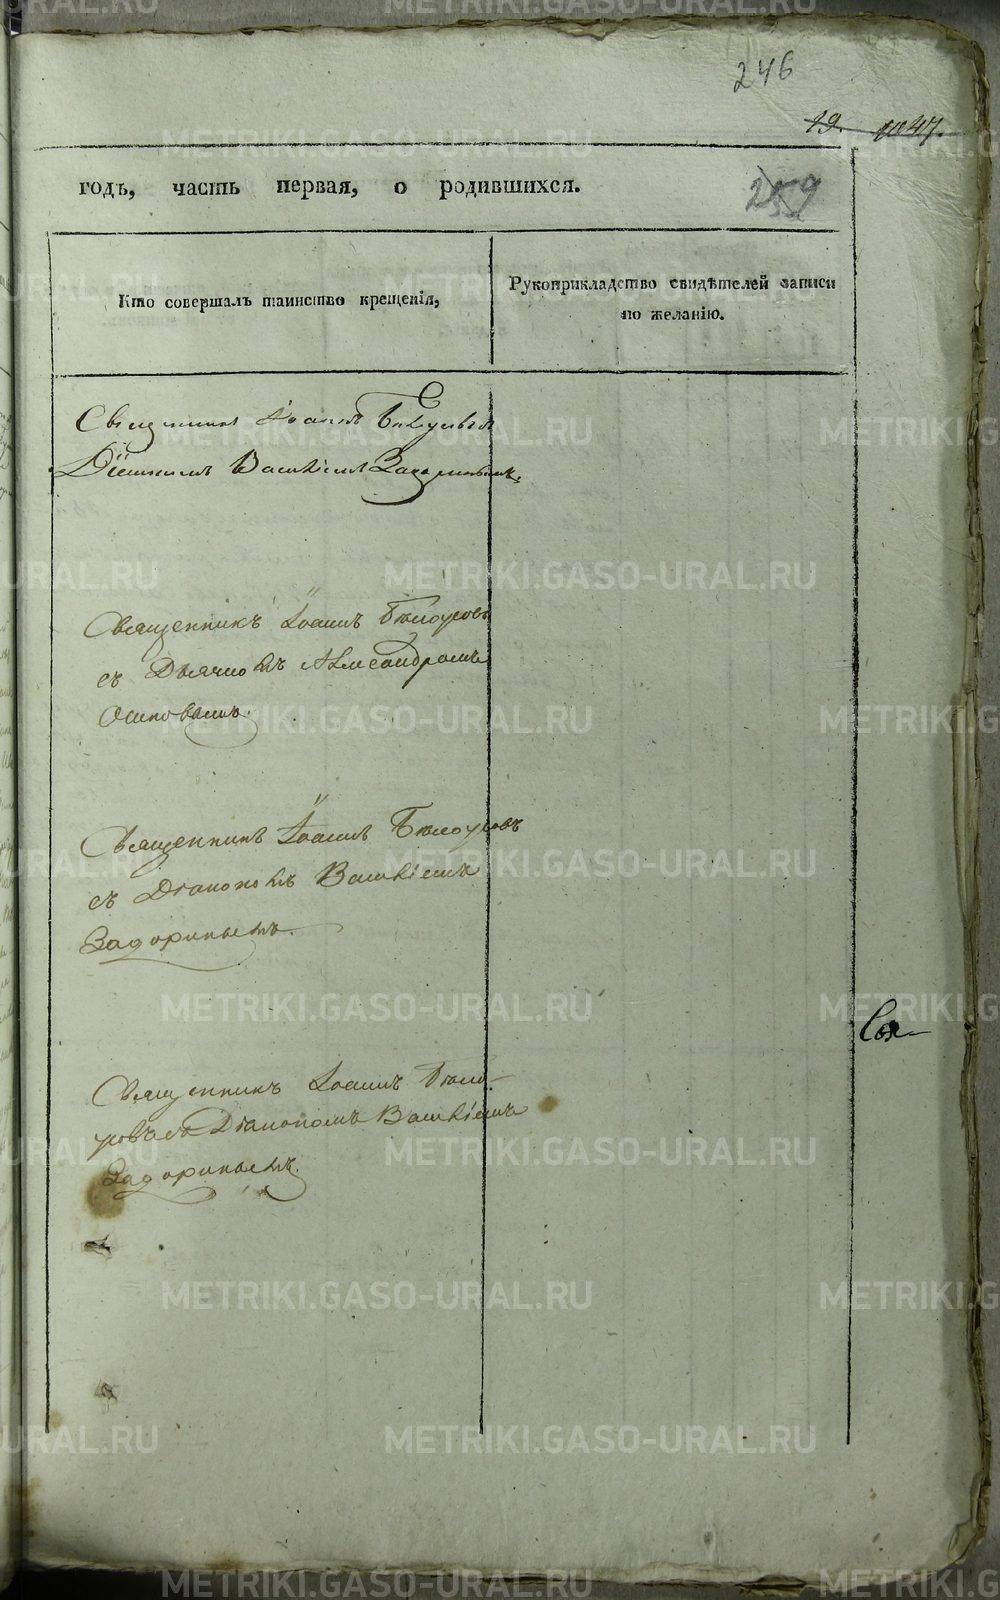 246
19. 1047.
годъ, часть первая, о родившихся.
259
Кто совершалъ таинство крещенія,
Рукоприкладство свидѣтелей записи
по желанію.
Священникъ Іоаннъ
Василіемъ
Священникъ Іоаннъ Бѣлоусовъ
съ Дьячкомъ Александромъ
Осиповымъ.
Священникъ Іоаннъ Бѣлоусовъ
съ Діакономъ Василіемъ
Задоринымъ.
Священникъ Іоаннъ Бѣло-
усовъ съ Діакономъ Василіемъ
Задоринымъ.
METRIKI.GASO-URAL.RU